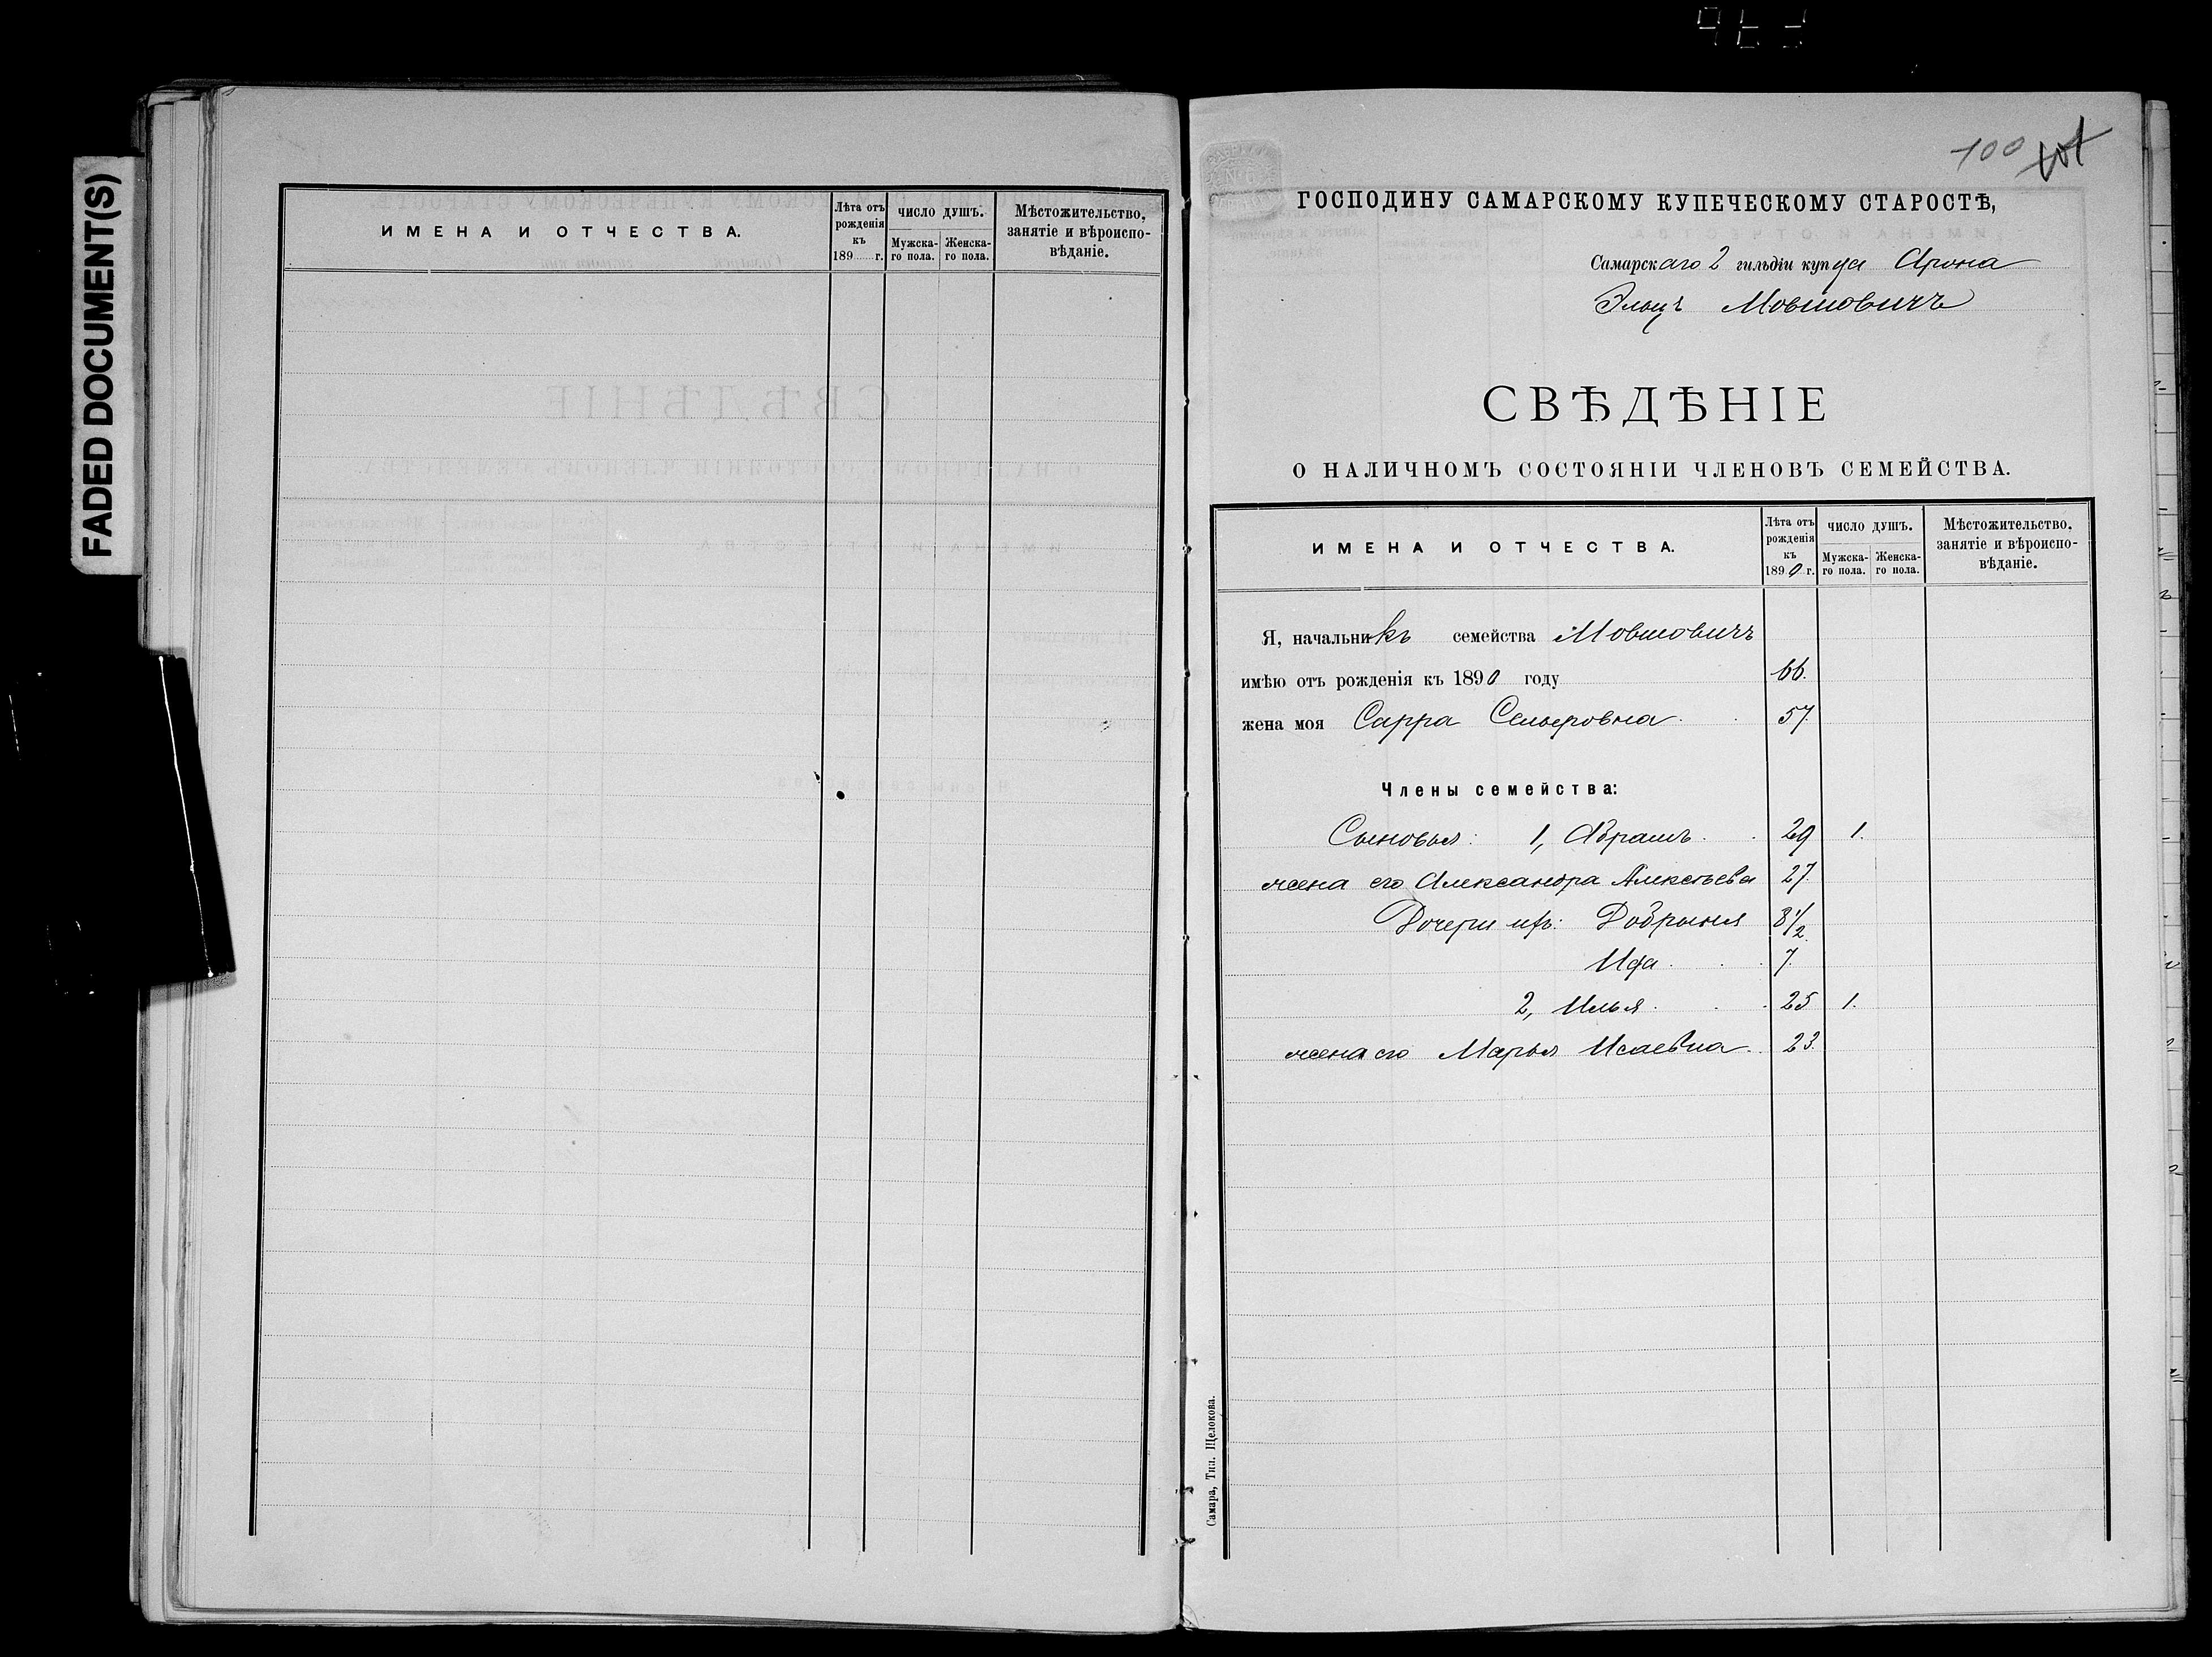 FADED DOCUMENT(S)
ИМЕНА И ОТЧЕСТВА.
Лѣта отъ рожденія къ 189 г.
ЧИСЛО ДУШЪ.
Мужска-го пола.
Женска-го пола.
Мѣстожительство, занятіе и вѣроиспо-вѣданіе.
100
ГОСПОДИНУ САМАРСКОМУ КУПЕЧЕСКОМУ СТАРОСТѢ,
Самарскаго 2 гильдіи купца Арона
Эльцъ Мовшовичъ
СВѢДѢНІЕ
О НАЛИЧНОМЪ СОСТОЯНІИ ЧЛЕНОВЪ СЕМЕЙСТВА.
ИМЕНА И ОТЧЕСТВА.
Лѣта отъ рожденія къ 1890 г.
ЧИСЛО ДУШЪ.
Мужска-го пола.
Женска-го пола.
Мѣстожительство, занятіе и вѣроиспо-вѣданіе.
Я, начальникъ семейства Мовшовичъ
имѣю отъ рожденія къ 1890 году 66.
жена моя Сарра 57.
Члены семейства:
Сыновья: 1, Абрамъ. 29 1.
жена его Александра Алексѣева 27.
Дочери ихъ: Добрыня 8 1/2.
Ида 7.
2, Илья 25 1.
жена его Марья Исаевна 23.
Самара, Тип. Щелокова.